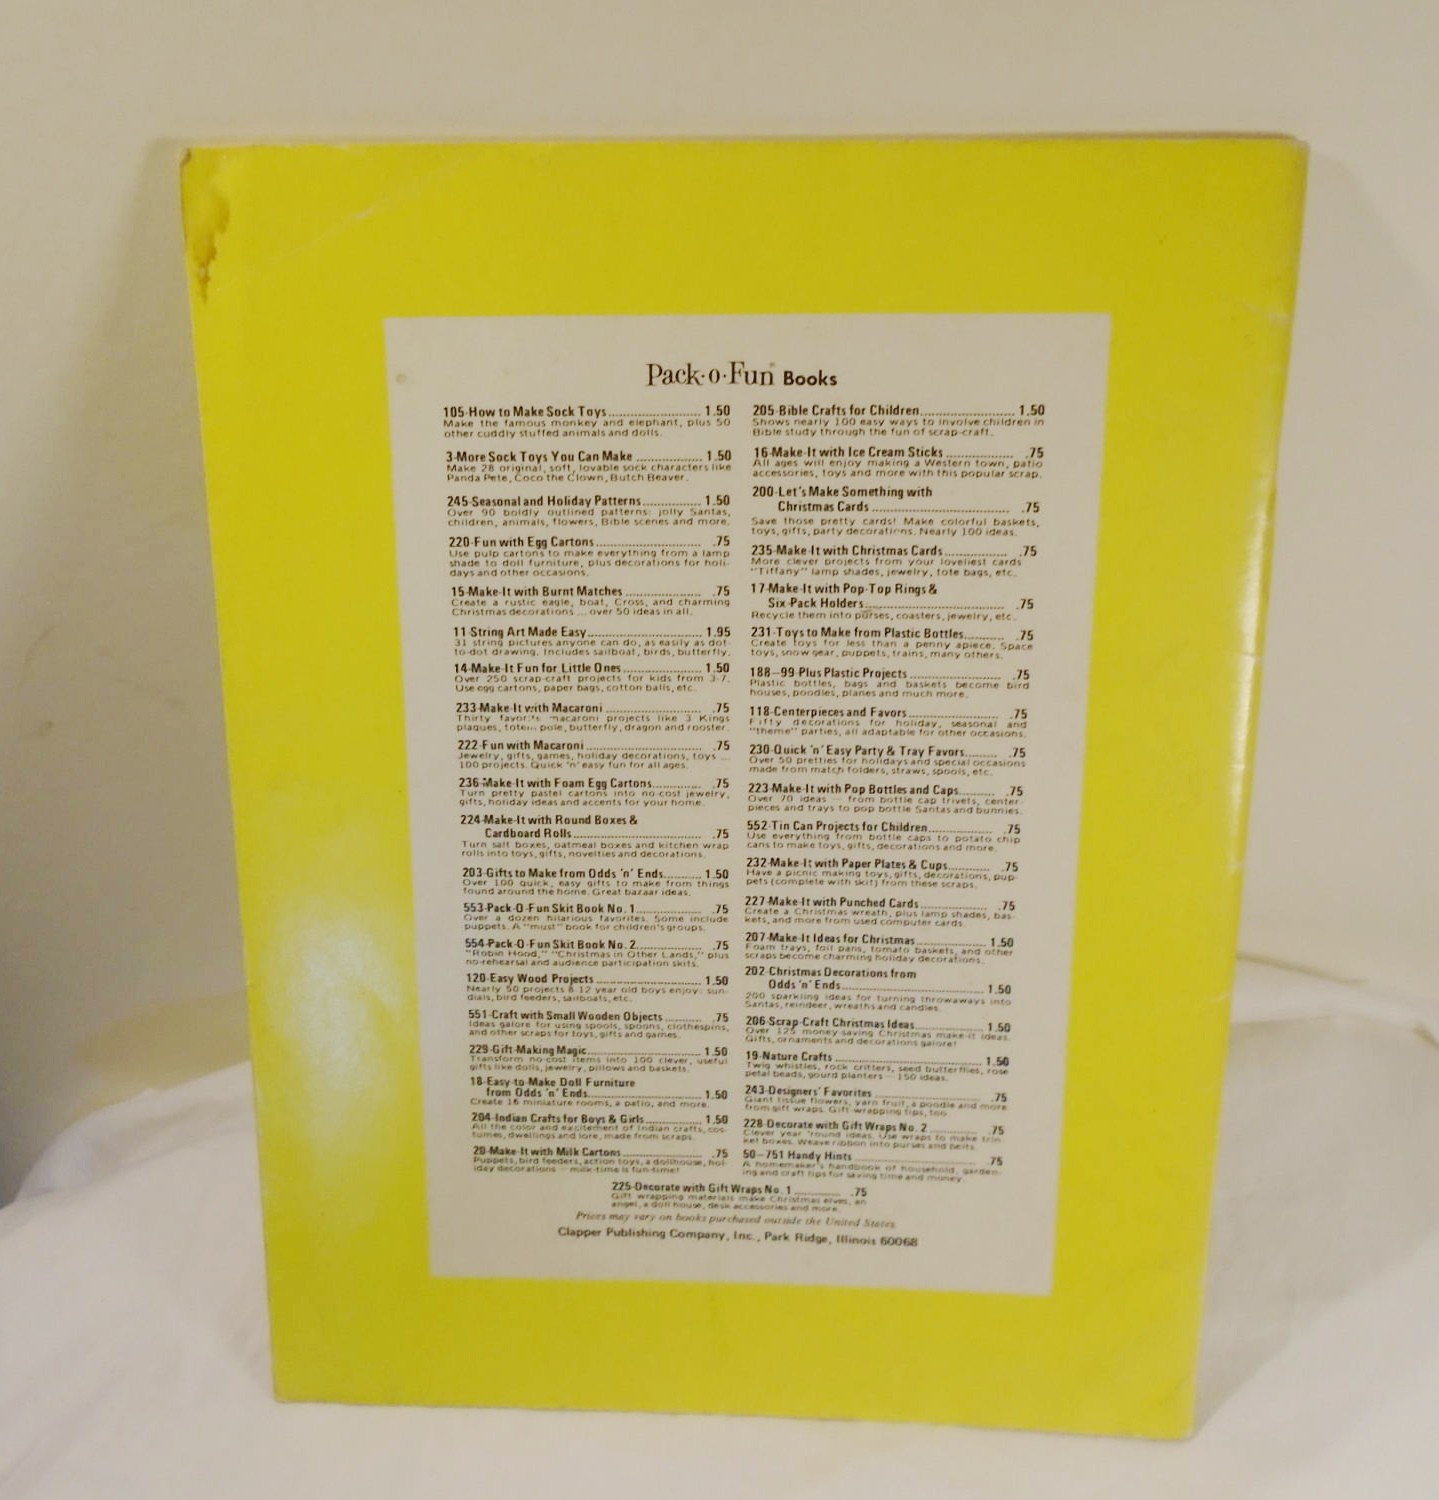 Pack-o-Fun Books
105-How to Make Sock Toys ........................ 1.50
Make the famous monkey and elephant, plus 50
other cuddly stuffed animals and dolls.
3-More Sock Toys You Can Make ................. 1.50
Make 28 original, soft, lovable sock characters like
Panda Pete, Coco the Clown, Butch Beaver.
245-Seasonal and Holiday Patterns ............... 1.50
Over 90 boldly outlined patterns: jolly Santas,
children, animals, flowers, Bible scenes and more.
220-Fun with Egg Cartons ........................... .75
Use pulp cartons to make everything from a lamp
shade to doll furniture, plus decorations for holi-
days and other occasions.
15-Make-It with Burnt Matches .................... .75
Create a rustic eagle, boat, Cross, and charming
Christmas decorations ... over 50 ideas in all.
11-String Art Made Easy .............................. 1.95
31 string pictures anyone can do, as easily as dot-
to-dot drawing. Includes sailboat, birds, butterfly.
14-Make-It Fun for Little Ones .................... 1.50
Over 250 scrap-craft projects for kids from 3-7.
Use egg cartons, paper bags, cotton balls, etc.
233-Make-It with Macaroni ......................... .75
Thirty favorite macaroni projects like 3 Kings
plaques, totem pole, butterfly, dragon and rooster.
222-Fun with Macaroni .............................. .75
Jewelry, gifts, games, holiday decorations, toys ...
100 projects. Quick 'n' easy fun for all ages.
236-Make-It with Foam Egg Cartons ............. .75
Turn pretty pastel cartons into no-cost jewelry,
gifts, holiday ideas and accents for your home.
224-Make-It with Round Boxes &
Cardboard Rolls .................................. .75
Turn salt boxes, oatmeal boxes and kitchen wrap
rolls into toys, gifts, novelties and decorations.
203-Gifts to Make from Odds 'n' Ends .......... 1.50
Over 100 quick, easy gifts to make from things
found around the home. Great bazaar ideas.
553-Pack-O-Fun Skit Book No. 1 ................. .75
Over a dozen hilarious favorites. Some include
puppets. A "must" book for children's groups.
554-Pack-O-Fun Skit Book No. 2 ................. .75
"Robin Hood," "Christmas in Other Lands," plus
no-rehearsal and audience participation skits.
120-Easy Wood Projects ............................ 1.50
Nearly 50 projects 8-12 year old boys enjoy: sun-
dials, bird feeders, sailboats, etc.
551-Craft with Small Wooden Objects .......... .75
Ideas galore for using spools, spoons, clothespins,
and other scraps for toys, gifts and games.
229-Gift-Making Magic .............................. 1.50
Transform no-cost items into 100 clever, useful
gifts like dolls, jewelry, pillows and baskets.
18-Easy-to-Make Doll Furniture
from Odds 'n' Ends .............................. 1.50
Create 16 miniature rooms, a patio, and more.
204-Indian Crafts for Boys & Girls ............... 1.50
All the color and excitement of Indian crafts, cos-
tumes, dwellings and lore, made from scraps.
20-Make-It with Milk Cartons ..................... .75
Puppets, bird feeders, action toys, a dollhouse, hol-
iday decorations — milk-time is fun-time!
205-Bible Crafts for Children ........................ 1.50
Shows nearly 100 easy ways to involve children in
Bible study through the fun of scrap-craft.
16-Make-It with Ice Cream Sticks ................. .75
All ages will enjoy making a Western town, patio
accessories, toys and more with this popular scrap.
200-Let's Make Something with
Christmas Cards .................................... .75
Save those pretty cards! Make colorful baskets,
toys, gifts, party decorations. Nearly 100 ideas.
235-Make-It with Christmas Cards ................ .75
More clever projects from your loveliest cards
"Tiffany" lamp shades, jewelry, tote bags, etc.
17-Make-It with Pop-Top Rings &
Six-Pack Holders .................................... .75
Recycle them into purses, coasters, jewelry, etc.
231-Toys to Make from Plastic Bottles .......... .75
Create toys for less than a penny apiece. Space
toys, snow gear, puppets, trains, many others.
188—99 Plus Plastic Projects ....................... .75
Plastic bottles, bags and baskets become bird
houses, poodles, planes and much more.
118-Centerpieces and Favors ....................... .75
Fifty decorations for holiday, seasonal and
"theme" parties, all adaptable for other occasions.
230-Quick 'n' Easy Party & Tray Favors ........ .75
Over 50 pretties for holidays and special occasions
made from match folders, straws, spools, etc.
223-Make-It with Pop Bottles and Caps ......... .75
Over 70 ideas — from bottle cap trivets, center-
pieces and trays to pop bottle Santas and bunnies.
552-Tin Can Projects for Children ................ .75
Use everything from bottle caps to potato chip
cans to make toys, gifts, decorations and more.
232-Make-It with Paper Plates & Cups .......... .75
Have a picnic making toys, gifts, decorations, pup-
pets (complete with skit) from these scraps.
227-Make-It with Punched Cards ................. .75
Create a Christmas wreath, plus lamp shades, bas-
kets, and more from used computer cards.
207-Make-It Ideas for Christmas .................. 1.50
Foam trays, foil pans, tomato baskets, and other
scraps become charming holiday decorations.
202-Christmas Decorations from
Odds 'n' Ends ..................................... 1.50
200 sparkling ideas for turning throwaways into
Santas, reindeer, wreaths and candles.
206-Scrap-Craft Christmas Ideas .................. 1.50
Over 125 money-saving Christmas make-it ideas.
Gifts, ornaments and decorations galore!
19-Nature Crafts ...................................... 1.50
Twig whistles, rock critters, seed butterflies, rose
petal beads, gourd planters — 150 ideas.
243-Designers' Favorites ............................ .75
Giant tissue flowers, yarn fruit, a poodle and more
from gift wraps. Gift-wrapping tips, too.
228-Decorate with Gift Wraps No. 2 ............. .75
Clever year 'round ideas. Use wraps to make trin-
ket boxes. Weave ribbon into purses and belts.
50—751 Handy Hints ................................ .75
A homemaker's handbook of household, garden-
ing and craft tips for saving time and money.
225-Decorate with Gift Wraps No. 1 ............. .75
Gift wrapping materials make Christmas elves, an
angel, a doll house, desk accessories and more.
Prices may vary on books purchased outside the United States
Clapper Publishing Company, Inc., Park Ridge, Illinois 60068